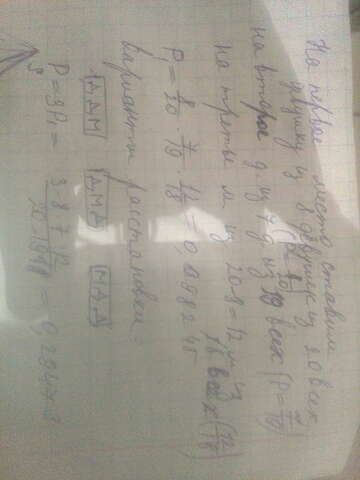 На первое место ставим
девушку из 8 девушек из 20 всех
(P=8/20)
на второе д. из 7 д. из 19 всех (P=7/19)
на третье м из 20-8=12 м из
18 всех (12/18)
P₁ = 8/20 · 7/19 · 12/18 = 0,098245
Варианты расстановки:
ДДМ ДМД МДД
P = 3P₁ = 3·8·7·12 / 20·19·18 =